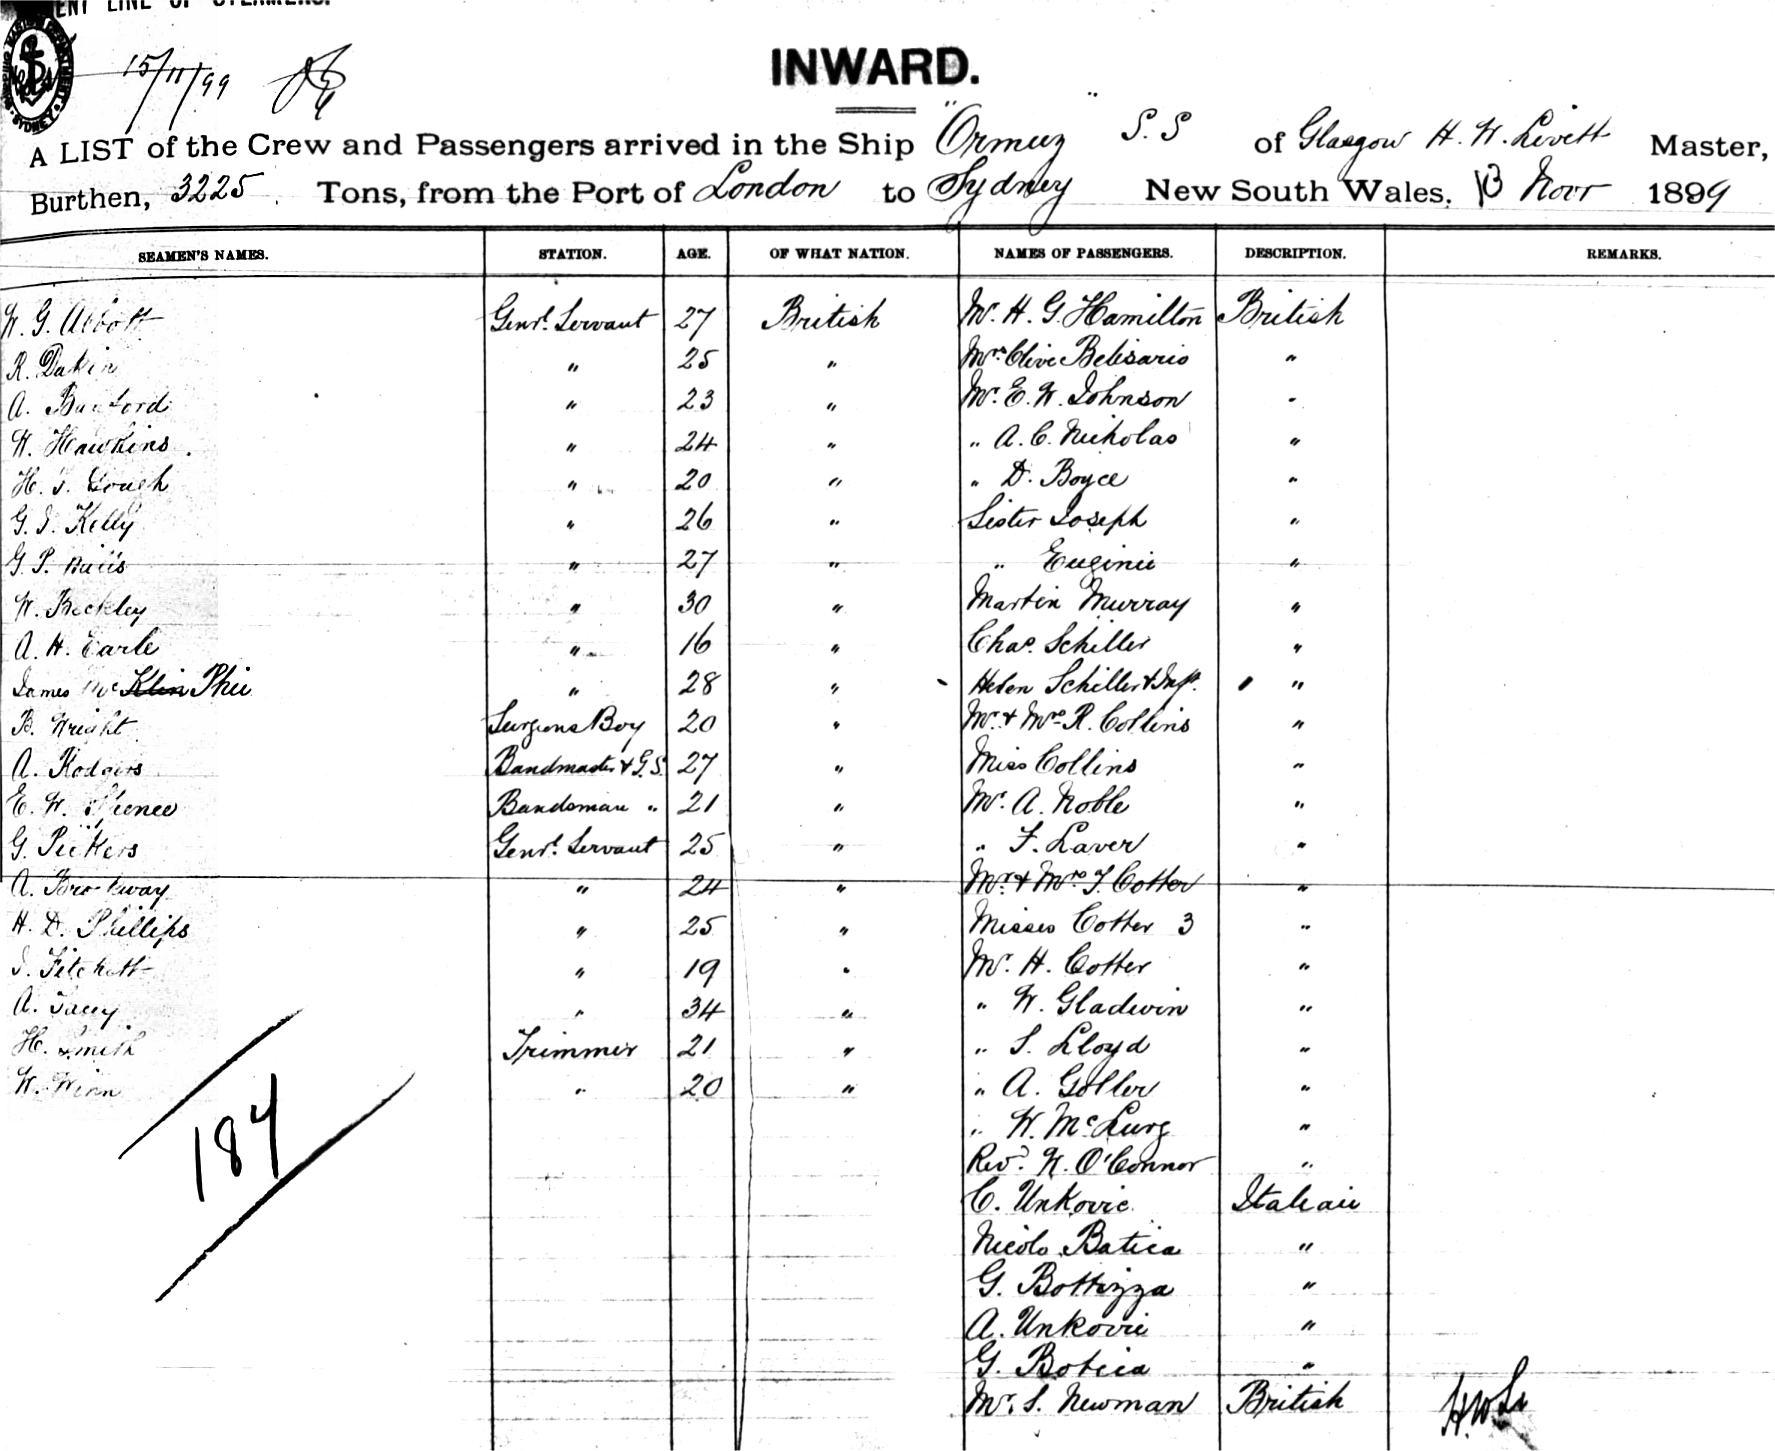 ENT LINE OF STEAMERS.
SYDNEY
15/11/99
INWARD.
A LIST of the Crew and Passengers arrived in the Ship "Ormuz" S.S of Glasgow H. W. Livett Master,
Burthen, 3225 Tons, from the Port of London to Sydney New South Wales, 13 Novr 1899
SEAMEN'S NAMES. STATION. AGE. OF WHAT NATION. NAMES OF PASSENGERS. DESCRIPTION. REMARKS.
W. G. Abbott Genrl. Servant 27 British Mr. H. G. Hamilton British
R. Dakin " 25 " Mrs. Clive Belisario "
A. " 23 " Mr. E. W. Johnson "
W. Hawkins " 24 " " A. C. Nicholas "
H. J. Gough " 20 " " D. Boyce "
G. J. Kelly " 26 " Sister Joseph "
G. P. " 27 " " Euginie "
W. Beckley " 30 " Martin Murray "
A. H. Earle " 16 " Chas. Schiller "
James Mc Klin Phie " 28 " Helen Schiller & Inft. "
B. Wright Surgeons Boy 20 " Mr. & Mrs R. Collins "
A. Rodgers Bandmaster & G.S. 27 " Miss Collins "
E. W. Spence Bandsman " 21 " Mr. A. Noble "
G. Genrl. Servant 25 " " F. Laver "
A. Brockway " 24 " Mr. & Mrs T. Cotter "
H. D. Phillips " 25 " Misses Cotter 3 "
J. Fitchett " 19 " Mr. H. Cotter "
A. Tacey " 34 " " W. Gladwin "
H. Smith Trimmer 21 " " S. Lloyd "
W. Winn " 20 " " A. Goller "
" W. McLurg "
Revd. W. O'Connor "
C. Unkovic Italian
Nicolo Batica "
G. Bottizza "
A. Unkovic "
G. Botica "
Mr. S. Newman British
184
H.W.L.